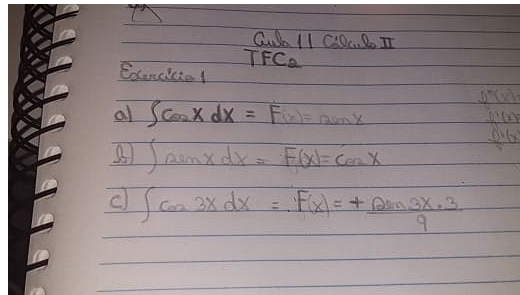 Aula 11 Cálculo II
TFC2
Exercício 1
a) ∫cos x dx = F(x) = sen x
b) ∫sen x dx = F(x) = cos x
c) ∫cos 3x dx = F(x) = + sen 3x . 3
9